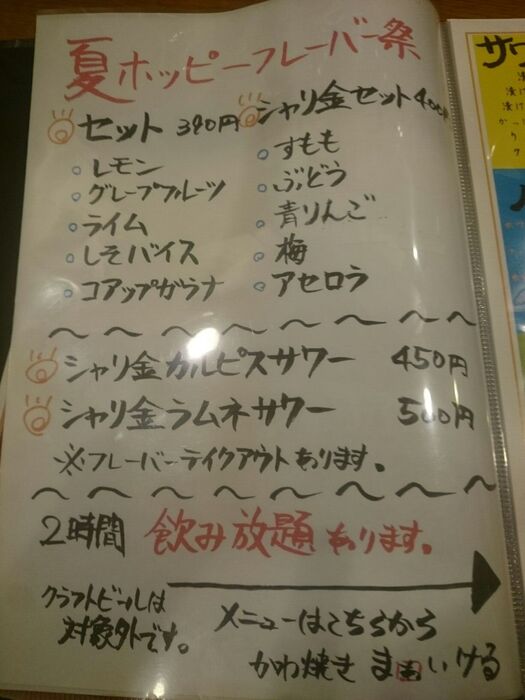 夏ホッピーフレーバー祭
セット 390円
シャリ金セット 400
レモン
グレープフルーツ
ライム
しそバイス
コアップガラナ
すもも
ぶどう
青りんご
梅
アセロラ
シャリ金カルピスサワー 450円
シャリ金ラムネサワー 500円
※フレーバーテイクアウトあります。
2時間 飲み放題あります。
クラフトビールは
対象外です。
メニューはこちらから
かわ焼き まぁいける
サワ